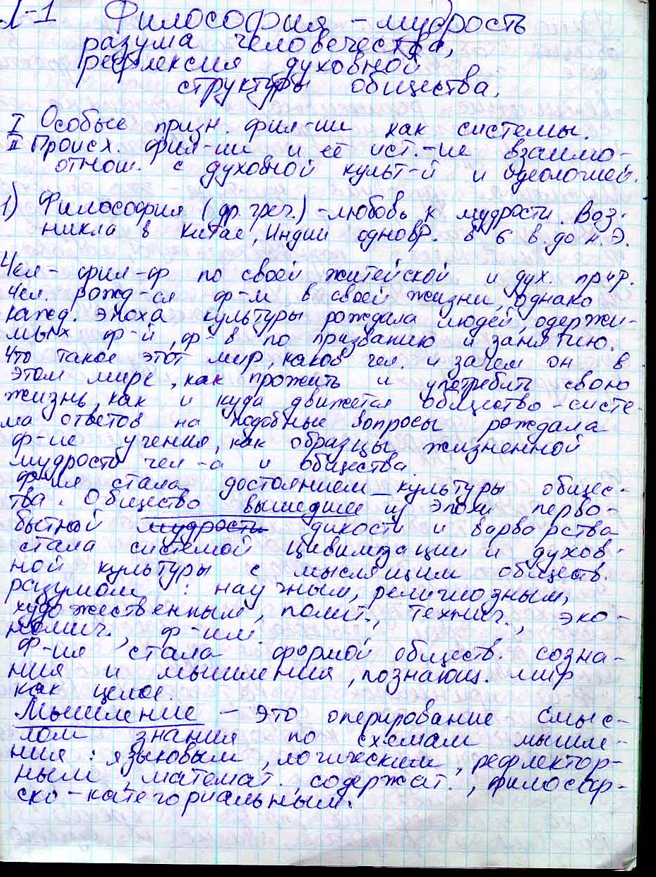 Л-1 Философия - мудрость
разума человечества,
рефлексия духовной
структуры общества.
I Особые призн. фил-ии как системы.
II Происх. фил-ии и её ист.-ие взаимо-
отнош. с духовной культ-й и идеологией.
1) Философия (др. греч.) - любовь к мудрости. Воз-
никла в Китае, Индии одновр. в 6 в. до н.э.
Чел - фил-ф по своей житейской и дух. прир.
Чел. рожд-ся ф-м в своей жизни, однако
кажд. эпоха культуры рождала людей, одержи-
мых ф-й, ф-в по призванию и занятию.
Что такое этот мир, каков чел. и зачем он в
этом мире, как прожить и употребить свою
жизнь, как и куда движется общество - систе-
ма ответов на подобные вопросы рождала
ф-ие учения, как образцы жизненной
мудрости чел-а и общества.
ф-ия стала достоянием культуры общес-
тва. Общество вышедшее из эпохи перво-
бытной мудрости дикости и варварства
стала системой цивилизации и духов-
ной культуры с мыслящим обществ.
разумом: научным, религиозным,
художественным, полит., технич., эко-
номич., ф-им.
ф-ия стала формой обществ. созна-
ния и мышления, познающ. мир
как целое.
Мышление - это оперирование смыс-
лом знания по схемам мышле-
ния: языковым, логическим, рефлектор-
ным, математ., содержат., философ-
ско-категориальным.